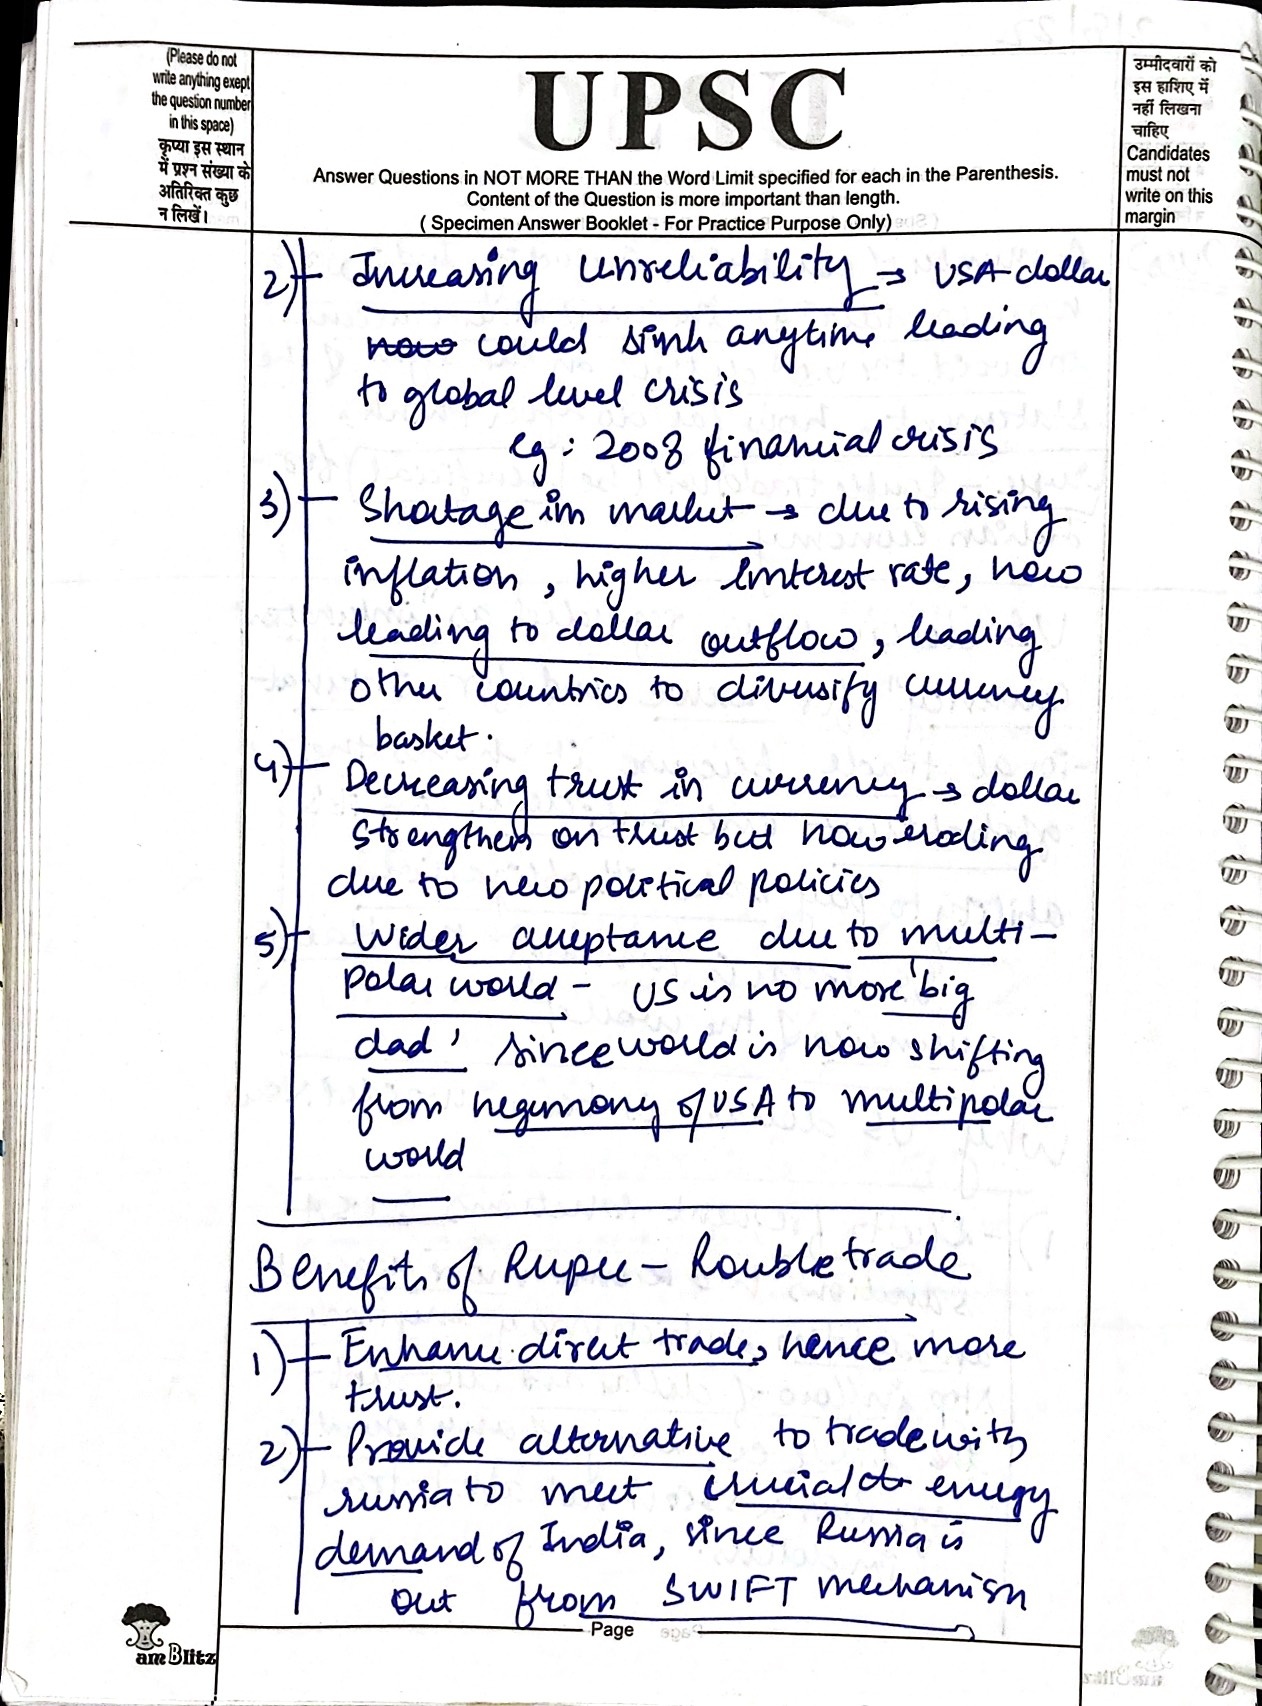 (Please do not
write anything exept
the question number
in this space)
कृप्या इस स्थान
में प्रश्न संख्या के
अतिरिक्त कुछ
न लिखें।
UPSC
Answer Questions in NOT MORE THAN the Word Limit specified for each in the Parenthesis.
Content of the Question is more important than length.
( Specimen Answer Booklet - For Practice Purpose Only)
उम्मीदवारों को
इस हाशिए में
नहीं लिखना
चाहिए
Candidates
must not
write on this
margin
2) Increasing unreliability → USA dollar
now could sink anytime leading
to global level crisis
eg: 2008 financial crisis
3) Shortage in market → due to rising
inflation, higher interest rate, now
leading to dollar outflow, leading
other countries to diversify currency
basket.
4) Decreasing trust in currency → dollar
strengthen on trust but now eroding
due to new political policies
5) Wider acceptance due to multi-
polar world - US is no more 'big
dad' since world is now shifting
from hegemony of USA to multipolar
world
Benefits of Rupee - Rouble trade
1) Enhance direct trade, hence more
trust.
2) Provide alternative to trade with
russia to meet crucial energy
demand of India, since Russia is
out from SWIFT mechanism
Page
am Blitz